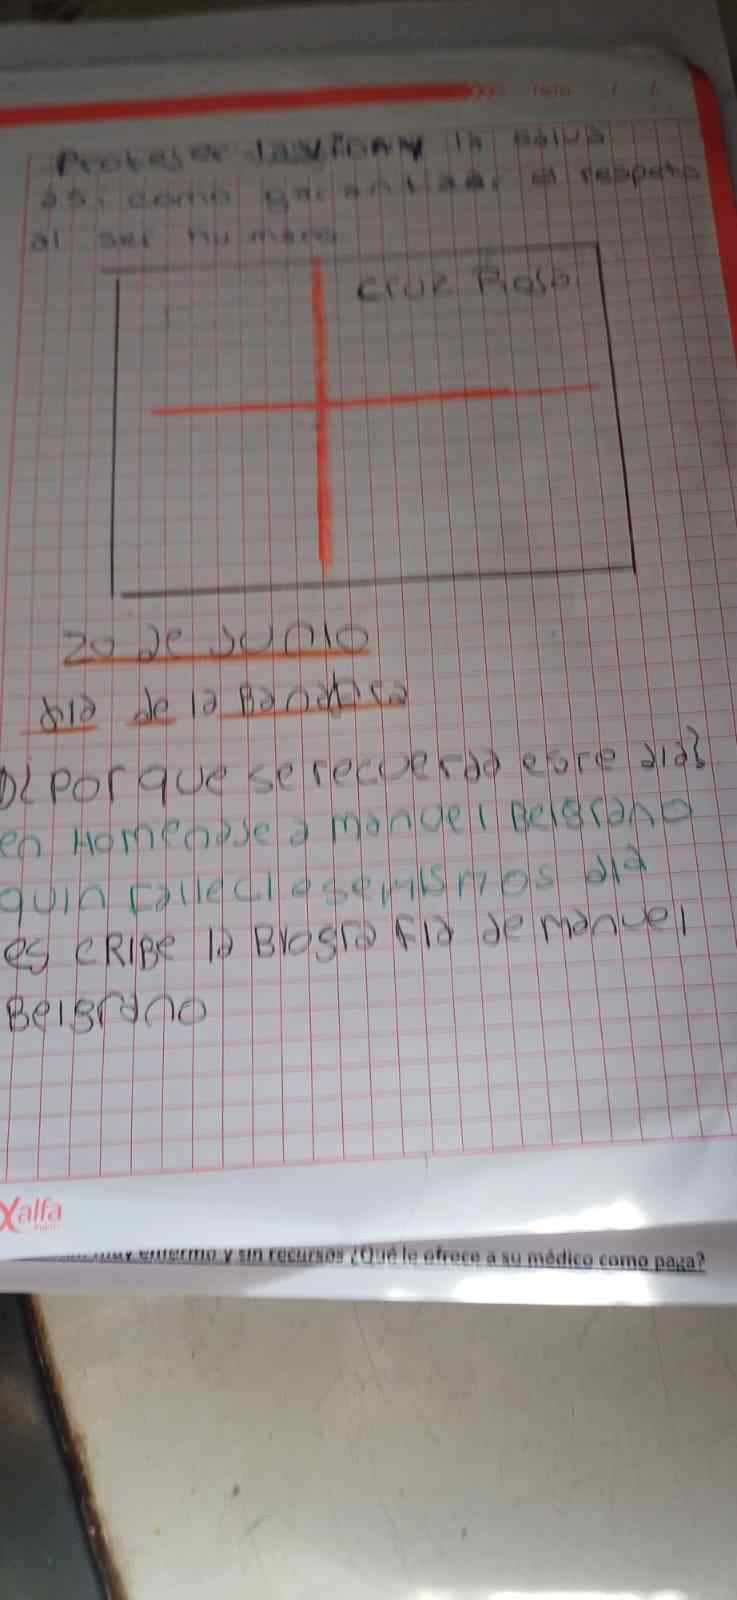 Proteger la vida y la salud
así como garantizar el respeto
al ser humano
cruz Roja
20 de Junio
día de la Bandera
D¿Por que se recuerda este dia?
en Homenaje a manuel Belgrano
quin falleció semismos dia
es CRIBE la Biografia de manuel
Belgrano
Xalfa
muy enfermo y sin recursos ¿Qué le ofrece a su médico como paga?